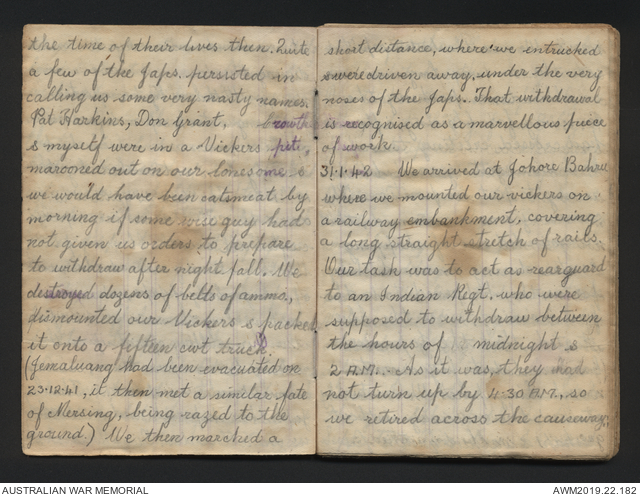 the time of their lives then. Quite
a few of the Japs. persisted in
calling us some very nasty names.
Pat Harkins, Don Grant,
& myself were in a Vickers pit,
marooned out on our lonesome &
we would have been catsmeat by
morning if some wise guy had
not given us orders to prepare
to withdraw after night fall. We
destroyed dozens of belts of ammo,
dismounted our Vickers & packed
it onto a fifteen cwt truck
(Jemaluang had been evacuated on
23.12.41, it then met a similar fate
of Mersing, being razed to the
ground.) We then marched a
short distance, where we entrucked
& were driven away, under the very
noses of the Japs. That withdrawal
is recognised as a marvellous piece
of work.
31.1.42 We arrived at Johore Bahru
where we mounted our vickers on
a railway embankment, covering
a long straight stretch of rails.
Our task was to act as rearguard
to an Indian Regt. who were
supposed to withdraw between
the hours of midnight &
2 A.M. As it was, they had
not turn up by 4.30 A.M., so
we retired across the causeway,
AUSTRALIAN WAR MEMORIAL
AWM2019.22.182